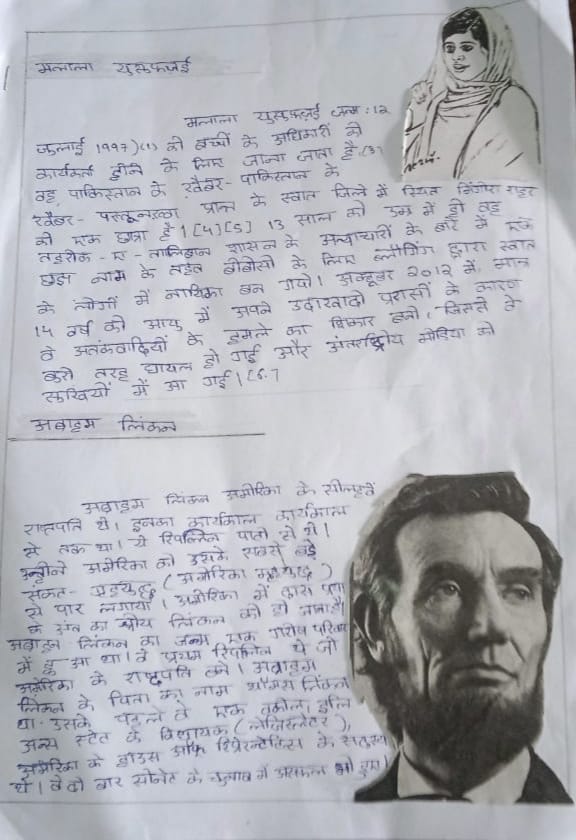 मलाला युसुफ़ज़ई
मलाला युसुफ़ज़ई जन्म: 12
जुलाई 1997)(1) को बच्चों के अधिकारों की
कार्यकर्ता होने के लिए जाना जाता है।(3)
वह पाकिस्तान के खैबर-पाकिस्तान के
खैबर- पख्तूनख्वा प्रान्त के स्वात जिले में स्थित मिंगोरा शहर
की एक छात्रा है।[4][5] 13 साल की उम्र में ही वह
तहरीक-ए-तालिबान शासन के अत्याचारों के बारे में एक
छद्म नाम के तहत बीबीसी के लिए ब्लॉगिंग द्वारा स्वात
के लोगों में नायिका बन गयी। अक्टूबर 2012 में, मात्र
14 वर्ष की आयु में अपने उदारवादी प्रयासों के कारण
वे आतंकवादियों के हमले का शिकार बनी, जिससे वे
बुरी तरह घायल हो गई और अंतरराष्ट्रीय मीडिया की
सुर्खियों में आ गई।[6.7
अब्राहम लिंकन
अब्राहम लिंकन अमेरिका के सोलहवें
राष्ट्रपति थे। इनका कार्यकाल कार्यकाल
से तक था। ये रिपब्लिकन पार्टी से थे।
उन्होंने अमेरिका को उसके सबसे बड़े
संकट- गृहयुद्ध (अमेरिका गृहयुद्ध)
से पार लगाया। अमेरिका में दास प्रथा
के अंत का श्रेय लिंकन को ही जाता है।
अब्राहम लिंकन का जन्म एक गरीब परिवार
में हुआ था। वे प्रथम रिपब्लिकन थे जो
अमेरिका के राष्ट्रपति बने। अब्राहम
लिंकन के पिता का नाम थॉमस लिंकन
था. उसके पहले वे एक वकील,
अन्य स्टेट के विधायक (लेजिस्लेटर),
अमेरिका के हाउस ऑफ रिप्रेस्न्टेटिव्स के सदस्य
थे। वे दो बार सीनेट के चुनाव में असफल भी हुए।